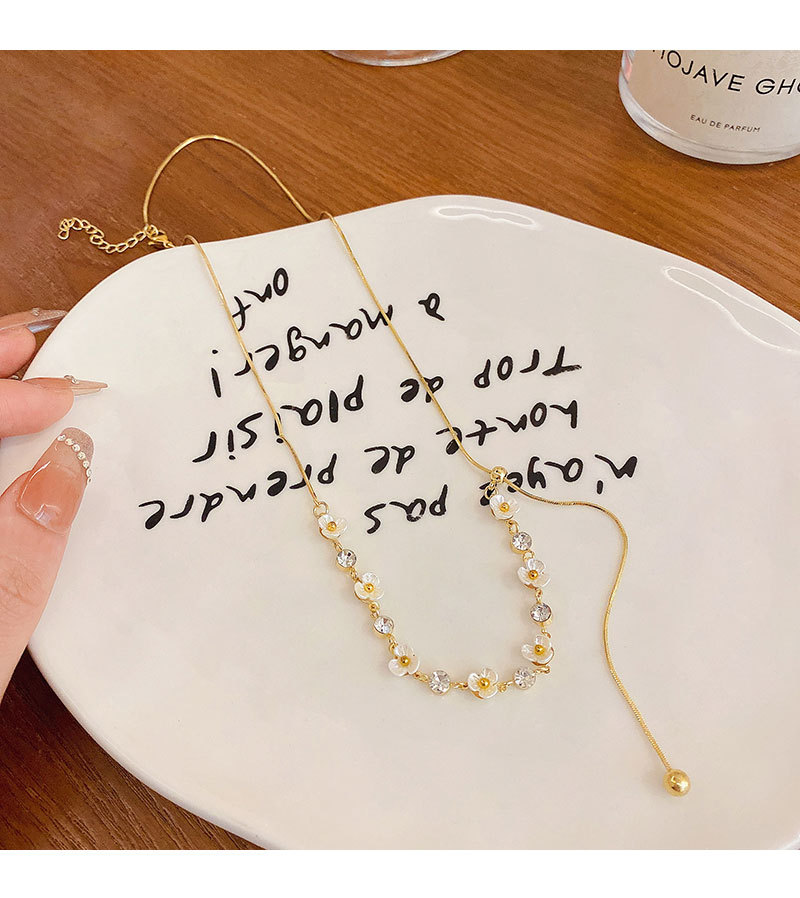 MOJAVE GHO
EAU DE PARFUM
n'ayez pas
honte de prendre
Trop de plaisir
à manger!
ont